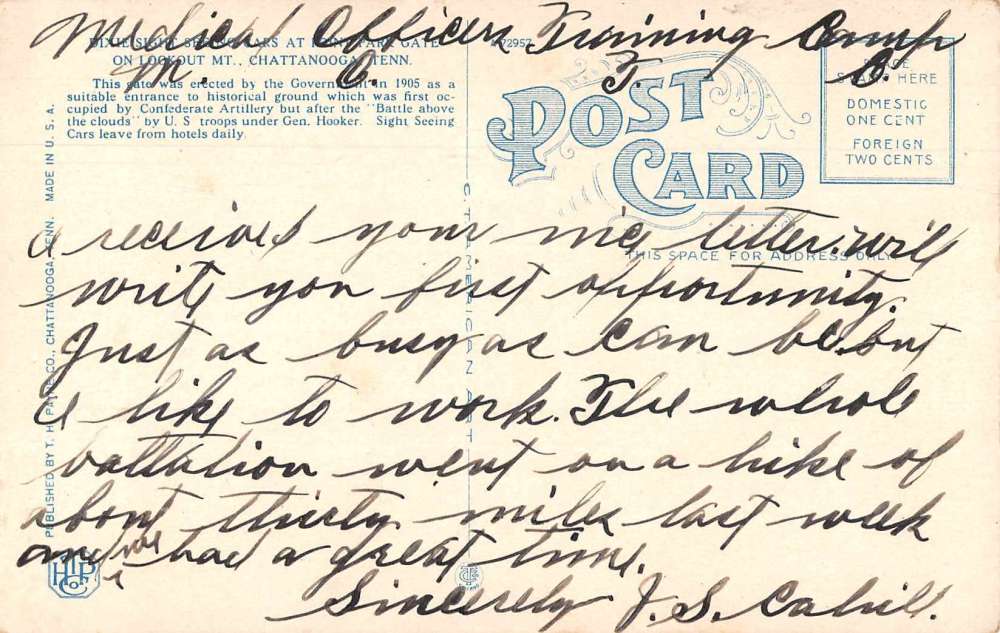 Medical Officers Training Camp
M. O. T. C.
DIXIE SIGHT SEEING CARS AT POINT PARK GATE
ON LOOKOUT MT., CHATTANOOGA, TENN.
This gate was erected by the Government in 1905 as a
suitable entrance to historical ground which was first oc-
cupied by Confederate Artillery but after the "Battle above
the clouds" by U. S troops under Gen. Hooker. Sight Seeing
Cars leave from hotels daily.
72957
POST
CARD
PLACE
STAMP HERE
DOMESTIC
ONE CENT
FOREIGN
TWO CENTS
THIS SPACE FOR ADDRESS ONLY
PUBLISHED BY T. H. PAYNE CO., CHATTANOOGA, TENN. MADE IN U. S. A.
C. T. AMERICAN ART
I received your nice letter. will
write you first opportunity.
Just as busy as can be but
I like to work. The whole
battalion went on a hike of
about thirty miles last week
and we had a great time.
Sincerely J. S. Cahill.